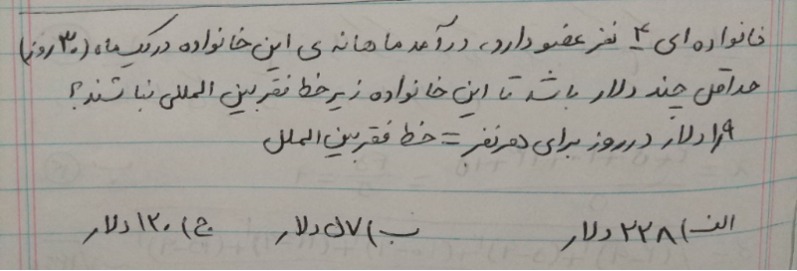 خانواده ای ۴ نفر عضو دارد، درآمد ماهانه ی این خانواده در یک ماه (۳۰ روز)
حداقل چند دلار باشد تا این خانواده زیر خط فقر بین المللی نباشند؟
۱٫۹ دلار در روز برای هر نفر = خط فقر بین الملل
الف) ۲۲۸ دلار ب) ۵۷ دلار ج) ۱۲۰ دلار